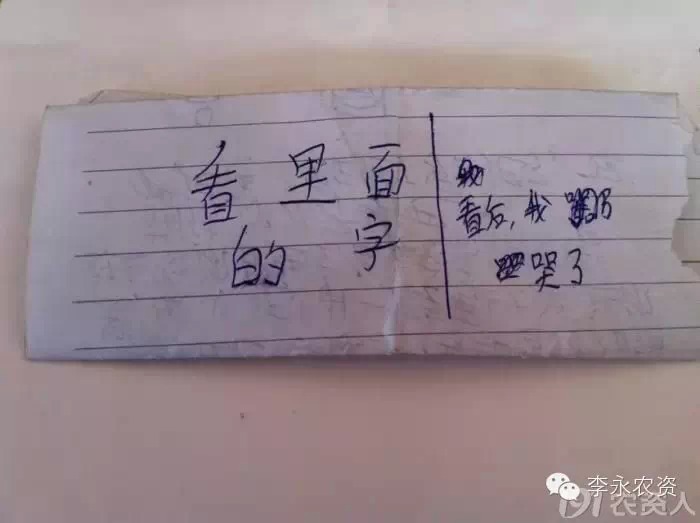 看里面
的字
看后，我
哭了
李永农资
农资人